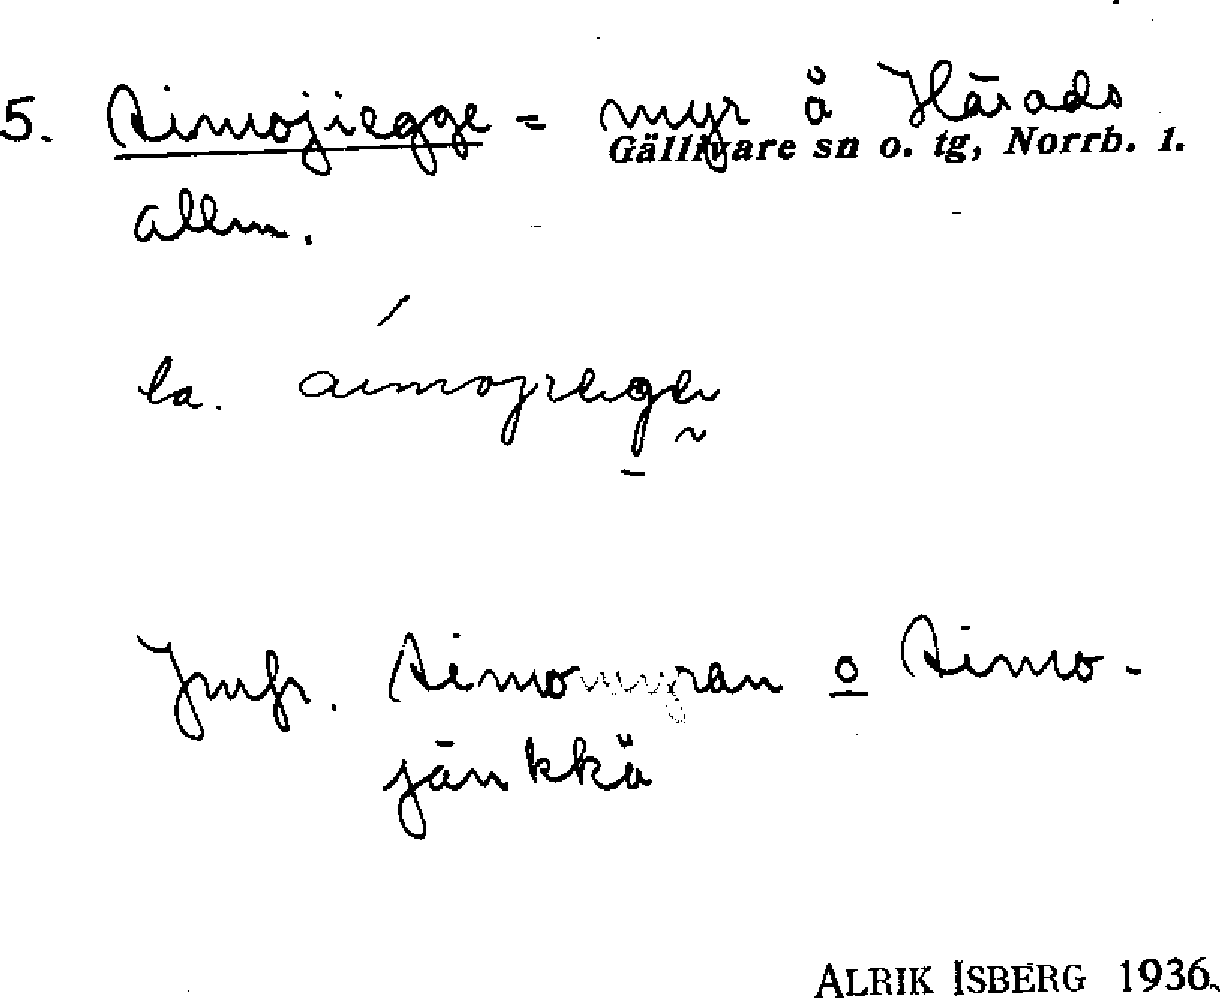 5. Aimojiegge = myr å Härads
Gällivare sn o. tg, Norrb. l.
allm.
la. aimojiegge
Jmfr. Aimomyran o Aimo-
jänkkä
ALRIK ISBERG 1936.